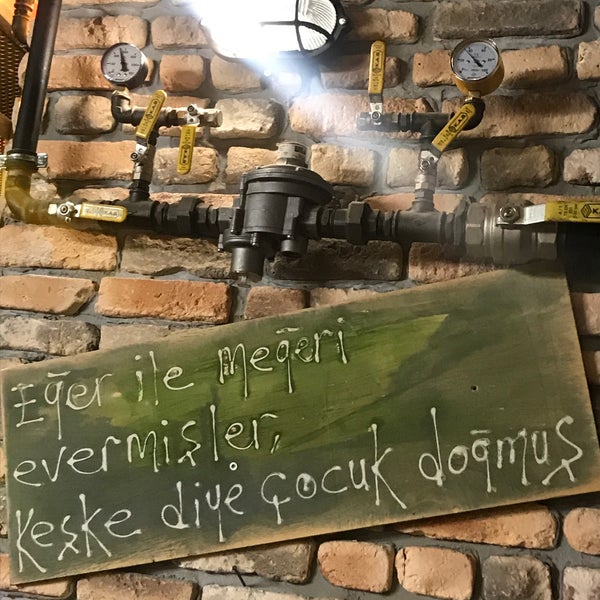 Eğer ile meğeri
evermişler,
keşke diye çocuk doğmuş